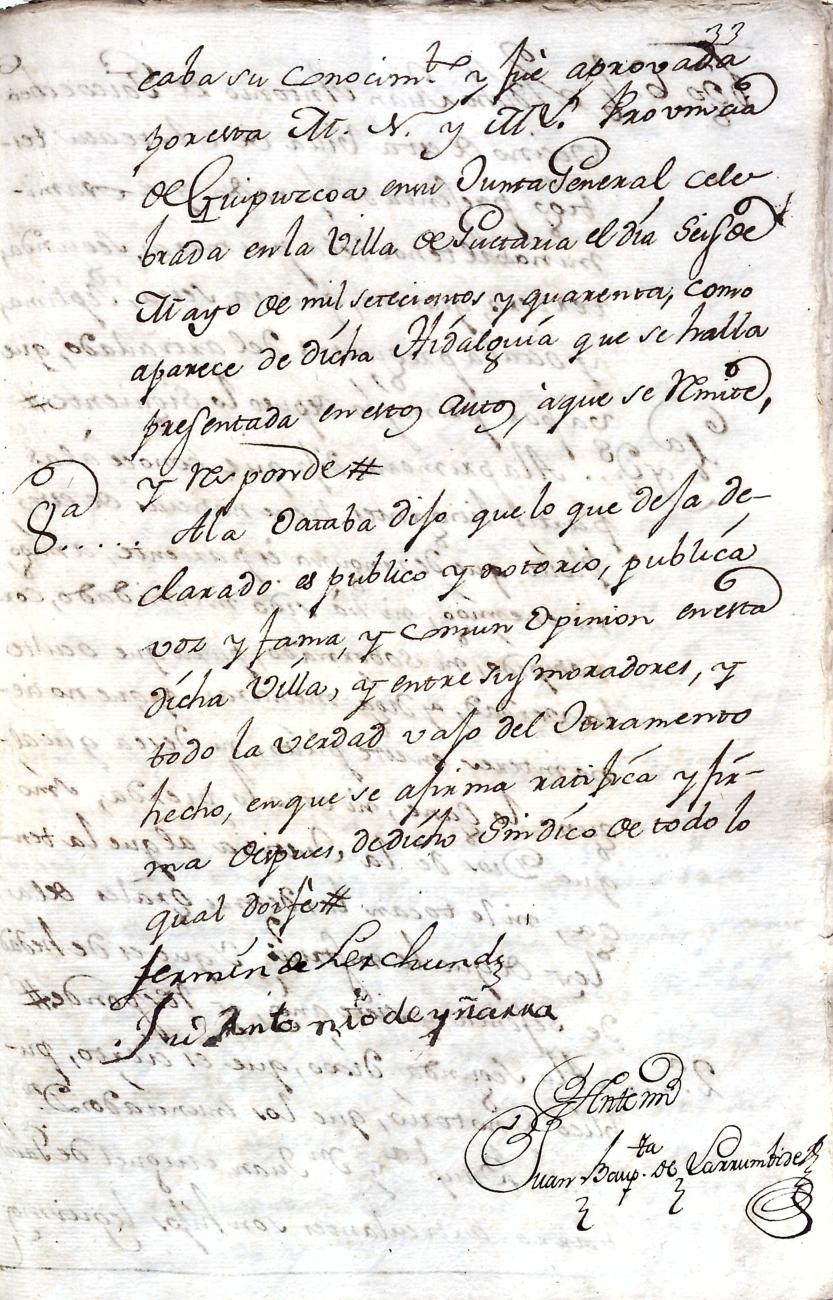 33
caba su conocim.to y fuè aprovada
por esta M. N. y M. L. Provincia
de Guipuzcoa en su Junta General cele-
brada en la Villa de Guetaria el día Seis de
Mayo de mil setecientos y quarenta, como
aparece de dícha Hídalguía que se halla
presentada en estos autos, à que se remite,
y responde #
8.a..... A la octaba dijo que lo que deja de-
clarado es publico y notorio, publica
voz y fama, y comun opinion en esta
dícha Villa, y entre sus moradores, y
todo la verdad vajo del Juramento
hecho, en que se afirma ratifica y fir-
ma despues, de dícho Sindico de todo lo
qual doi feè #
fermín de Lerchundi
Jn. Antonio de yñarra
Ante mi
Juan Baup.ta de Larrumbide